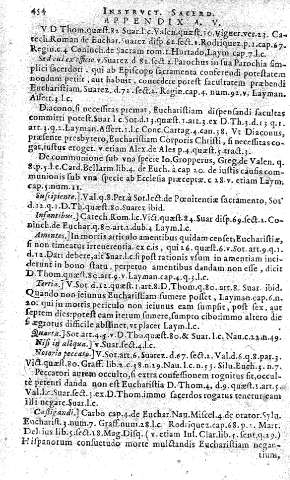 454 INSTRUCT. SACERD.
APPENDIX. V.
V. D Thom. quæst. 82. Suar. l. c. Valen. quæst. 10. Vigner. ver. 23. Ca-
tech. Roman de Euchar. Suarez disp. 62. sect. 1. Rodriquez p. 1. cap. 67.
Regin. c. 4 Coninch. de Sacram tom. 1. Hurtado, Laym cap. 7. l. c.
Sed cui ex officio v. Suarez d 82. sect. 2 Parochus in sua Parochia sim-
plici sacerdoti, qui ab Episcopo sacramenta conferendi potestatem
nondum petiit, aut habuit, concedere potest facultatem præbendi
Eucharistiam. Suarez. d. 72. sect. 2. Regin cap. 4. num. 92. v. Layman.
Assert. 3. l. c.
Diacono, si necessitas premat, Eucharistiam dispensandi facultas
committi potest. Suar l. c
art. 3. q. 1. Layman. Assert. 1. l. c Conc. Cartag. 4. can. 38. Vt Diaconus,
præsente presbytero, Eucharistiam Corporis Christi, si necessitas co-
gat, iussus eroget. v. etiam Alex de Ales p. 4. quæst. 5
De communione sub vna specie Io. Gropperus, Greg. de Valen. q.
8. p. 5. l. c. Card. Bellarm lib. 4. de Euch. à cap. 20. de iustis causis com-
munionis sub vna specie ab Ecclesia præceptæ c. 28 v. etiam Laym.
cap. 3. num. 11.
Suscipiente.] Val q. 98. Petr. à Soto lect de Pœnitentiæ sacramento, Sos'
d. 12. q. 1. D. Tho. quæst. 80. Suarez ibid.
Infantibus.] Catech. Rom. l. c. Vict. quæst. 84. Suar disp. 69. sect. 2. Co-
ninch. de Euchar. q. 80. art. 2. dub 4. Laym l. c.
Amentes.] In mortis articulo amentibus quidam censet Eucharistiæ,
si non timeatur irreuerentia
d. 12. Dari debere, ait Suar. l. c. si post rationis vsum in amentiam inci-
derint in bono statu, perpetuo amentibus dandam non esse, dicit
D Thom. quæst. 80. art. 9. v Layman cap. 4. q. 3. l. c.
Tertia.] V Sot d. 12. quæst. 1. art. 8. D. Thom. q. 80. art. 8. Suar. ibid.
Quando non ieiunus Eucharistiam sumere posset, Layman. cap. 6. n.
20. qui in mortis periculo non ieiunus eam sumpsit, post sex, aut
septem dies potest eam iterum sumere, sumpto cibo dummodo altero die
si ægrotus difficile abstineat, vt placet Laym l. c.
Quarta.] Sot art. 4. q. v. D. Tho. quæst. 80. & Suar. l. c. Nau. c. 21. n. 49.
Nisi in aliqua.] v. Suar. sect. 4. l. c.
Notorio peccato.] V. Sot. art. 6. Suarez. d. 67. sect. 2. Val. d. 6. q. 8. par. 3.
Vict. quæst. 80. Graff. lib. 2. c. 38. n. 19. Nau. l. c. n. 55. Siluest. Euch. 3. n. 7.
Peccatori autem occulto, si extra confessionem rogauit sit occul-
tè petenti danda non est Eucharistia D. Thom. 4. d. 9. quæst. 1. art. 5.
Val. l. c. Suar. sect. 5. l. c. ex D. Thom. immo sacerdos rogatus tenetur eam
illi negare. Suar. l. c.
Castigandi.] Carbo cap. 4 de Euchar. Nau. Miscel. 4. de orator. Sylu.
Eucharist. 3. num. 7. Graff. num. 28. l. c. Rodriquez. cap. 68. p. 1. Mart.
Del. ius lib. 5. sect. 18. Mag. Disq. (v. etiam Inf. Clar. lib. 5. sent. q. 29.)
Hispanorum consuetudo morte mulctandis Eucharistiam negan-
tium,